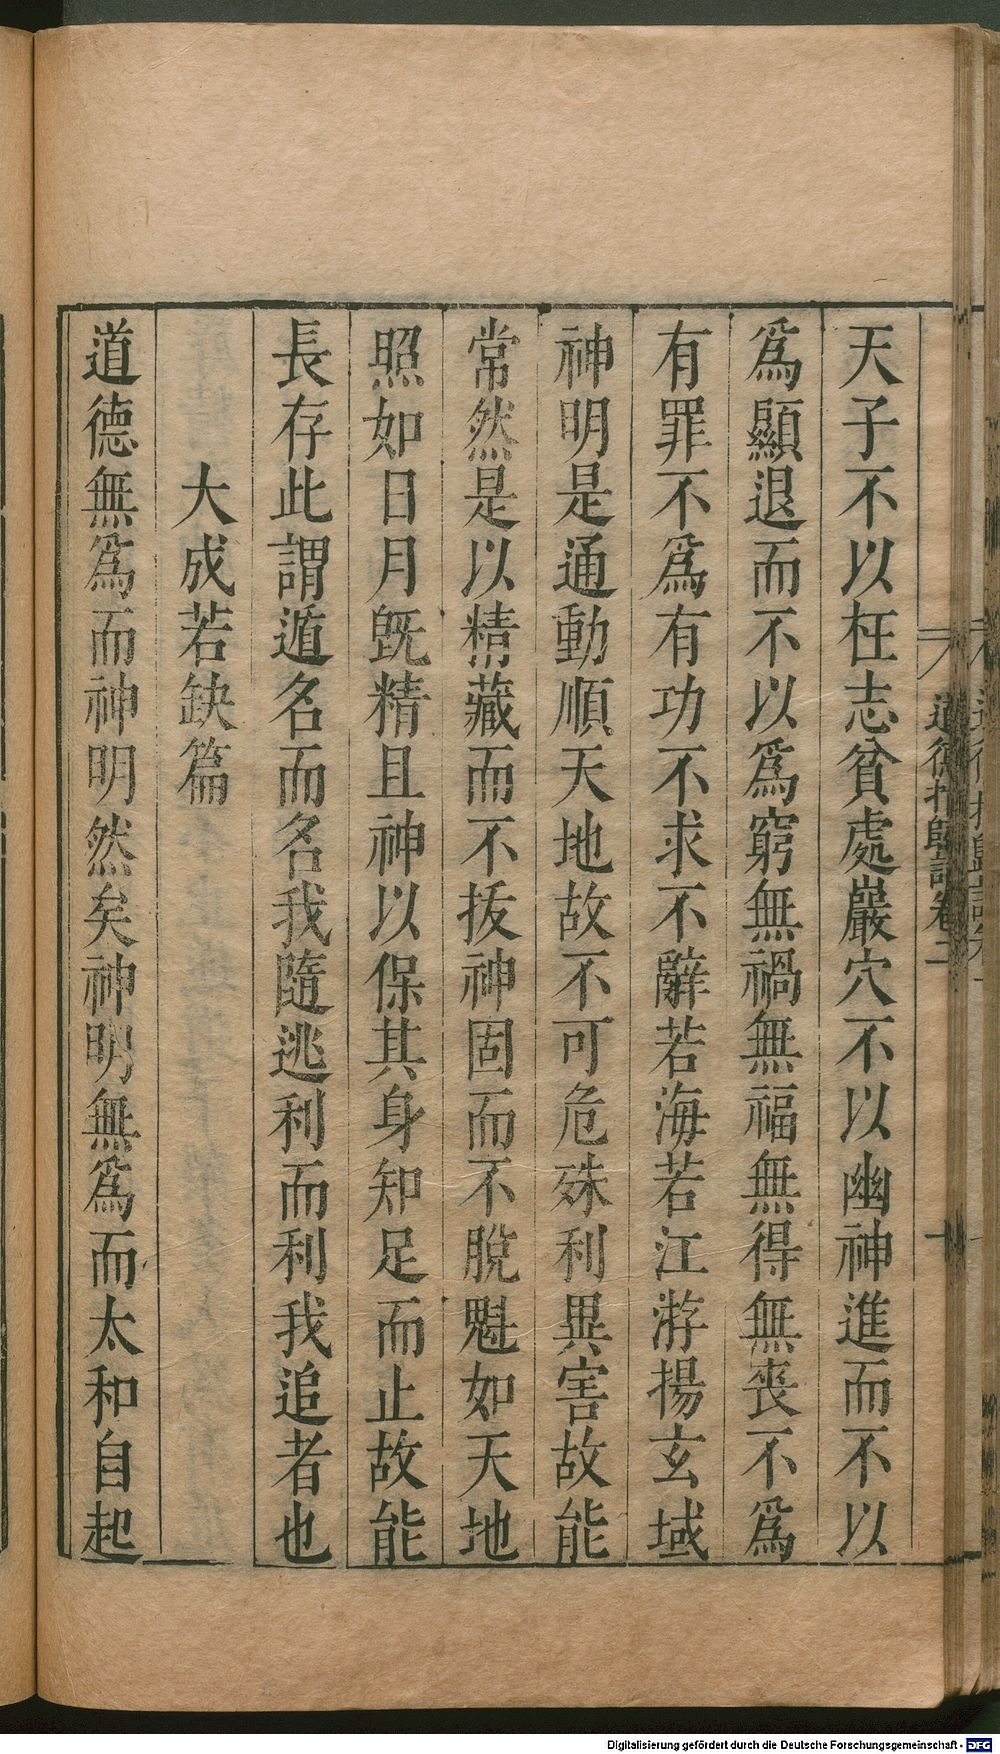 天子不以枉志貧處巖穴不以幽神進而不以
爲顯退而不以爲窮無禍無福無得無喪不爲
有罪不爲有功不求不辭若海若江游揚玄域
神明是通動順天地故不可危殊利異害故能
常然是以精藏而不拔神固而不脫魁如天地
照如日月旣精且神以保其身知足而止故能
長存此謂遁名而名我隨逃利而利我追者也
大成若缺篇
道德無爲而神明然矣神明無爲而太和自起
道德指歸論卷二
Digitalisierung gefördert durch die Deutsche Forschungsgemeinschaft - DFG